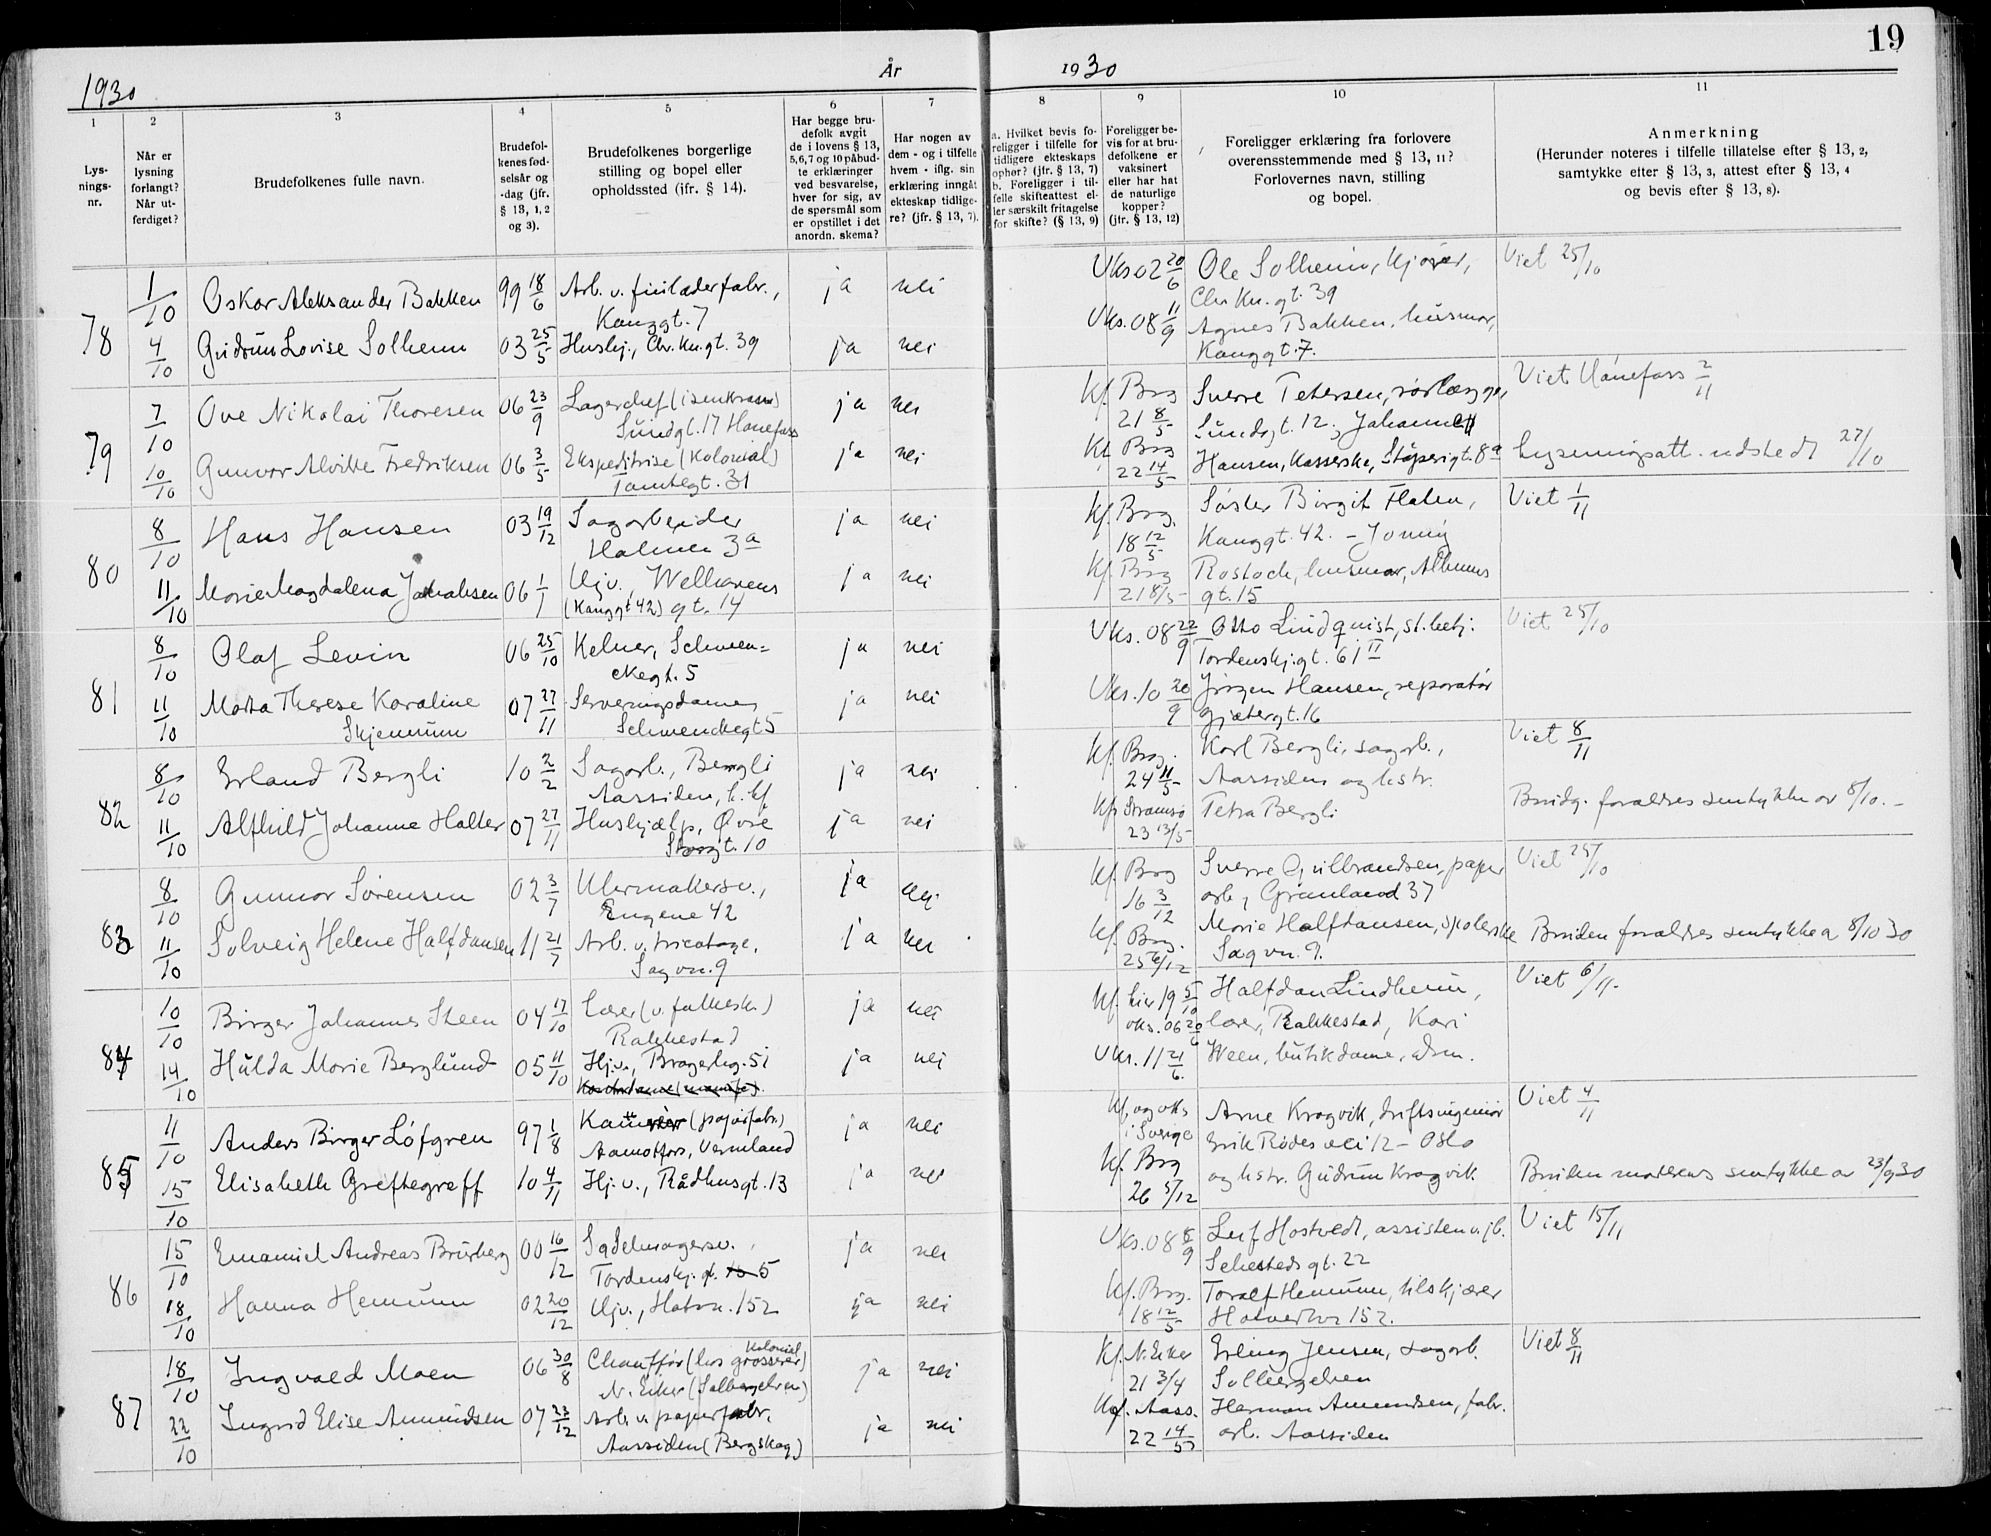 19
1930
År
1930
1
2
3
4
5
6
7
8
9
10
11
Lys-
nings-
nr.
Når er
lysning
forlangt?
Når ut-
ferdiget?
Brudefolkenes fulle navn.
Brudefol-
kenes fød-
selsår og
-dag (jfr.
§ 13, 1, 2
og 3).
Brudefolkenes borgerlige
stilling og bopel eller
opholdssted (jfr. § 14).
Har begge bru-
defolk avgit
de i lovens § 13,
5, 6, 7 og 10 påbud-
te erklæringer
ved besvarelse,
hver for sig, av
de spørsmål som
er opstillet i det
anordn. skema?
Har nogen av
dem - og i tilfelle
hvem - iflg. sin
erklæring inngått
ekteskap tidlige-
re? (jfr. § 13, 7).
a. Hvilket bevis fo-
religger i tilfelle for
tidligere ekteskaps
ophør? (jfr. § 13, 7)
b. Foreligger i til-
felle skifteattest el-
ler særskilt fritagelse
for skifte? (§ 13, 9)
Foreligger be-
vis for at bru-
defolkene er
vaksinert
eller har hat
de naturlige
kopper?
(jfr. § 13, 12)
Foreligger erklæring fra forlovere
overensstemmende med § 13, 11?
Forlovernes navn, stilling
og bopel.
Anmerkning
(Herunder noteres i tilfelle tillatelse efter § 13, 2,
samtykke efter § 13, 3, attest efter § 13, 4
og bevis efter § 13, 8).
78
1/10 Oskar Aleksander Bakken 99 18/6 Arb. v. fabr., ja nei Vks. 02 20/6 Ole Solheim, kjører, Viet 25/10
Kanggt. 7 Chr. Kn. gt. 39
4/10 Gudrun Lovise Solheim 03 25/5 Hushj., Chr. Kn. gt. 39 ja nei Vks. 08 11/9 Agnes Bakken, husmor,
Kanggt. 7.
79
7/10 Ove Nikolai Thoresen 06 23/9 Lagerchef (isenkram) ja nei Kf. Brg 21 8/5 Sverre Petersen, rørlægger, Viet Hønefoss 2/11
Sundgt. 17 Hønefoss Sundgt. 12. Johanne
10/10 Gunvor Alvilde Fredriksen 06 3/5 Ekspeditrise (Kolonial) ja nei Kf. Brg 22 14/5 Hansen, Kasserske, Støperigt. 8a Lysningsatt. udstedt 27/10
Tomtegt. 31
80
8/10 Hans Hansen 03 19/12 Sagarbeider ja nei Kf. Brg. 18 12/5 Søster Birgit Flaten, Viet 1/11
Holmen 3a Kanggt. 42. -
11/10 Marie Magdalena Jakobsen 06 1/1 Hjv., Welhavens ja nei Kf. Brg 21 8/5 Rostoch, husmor,
(Kanggt 42) gt. 14 gt. 15
81
8/10 Olaf Levin 06 25/10 Kelner, Schwen= ja nei Vks. 08 22/9 Otto Lindquist, st.betj. Viet 25/10
ckegt. 5 Tordenskj.gt. 61 II
11/10 Marta Therese Karoline 07 27/11 Serveringsdame, ja nei Vks. 10 20/9 Jørgen Hansen, reparatør
Skjennum Schwenckegt 5 Gjetergt. 16
82
8/10 Erland Bergli 10 2/2 Sagarb., Bergli ja nei Kf. Brg. 24 11/5 Karl Bergli, sagarb., Viet 8/11
Aassiden, Aassiden og hstr.
11/10 Alfhild Johanne Halter 07 27/11 Hushjælp, Øvre ja nei Kf. Strømsø 23 13/5 Petra Bergli Brudg. forældres samtykke av 8/10. -
Storgt. 10
83
8/10 Gunnar Sørensen 02 3/7 Uhrmakersv., ja nei Kf. Brg 16 3/12 Sverre Gulbrandsen, papir Viet 25/10
Engene 42 arb., Grønland 37
11/10 Solveig Helene Halfdansen 11 21/7 Arb. v. tricotage, ja nei Kf. Brg. 25 6/12 Marie Halfdansen, spolerske Bruden forældres samtykke a 8/10 30
Sagvn. 9 Sagvn. 9.
84
10/10 Birger Johannes Steen 04 17/10 Lærer (v. folkesk.) ja nei Kf. Lier 19 5/10 Halfdan Lindheim, Viet 6/11.
Rakkestad vks. 06 20/6 lærer, Rakkestad, Kari
14/10 Hulda Marie Berglund 05 11/10 Hjv., Bragerhg. 5i ja nei Vks. 11 21/6. Ween, butikdame, Drm.
85
11/10 Anders Birger Löfgren 97 1/8 Kamrér (papirfabr.) ja nei Kf. og vks. i Sverige Arne Kragvik, driftsingeniør Viet 4/11
Aamotfors, Vermland Erik Rødes vei 12 - Oslo
15/10 Elisabeth Greftegreff 10 4/11 Hj.v., Rådhusgt. 13 ja nei Kf. Brg 26 5/12 og hstr. Gudrun Kragvik. Bruden moderens samtykke av 23/9 30
86
15/10 Emanuel Andreas Bruberg 00 16/12 Sadelmagersv., ja nei Vks. 08 6/9 Leif Hostvedt, assisten v. jb. Viet 15/11
Tordenskj. gt. 5 Sehesteds gt. 22
18/10 Hanna Hemum 02 20/12 Hjv., Hotvn. 152 ja nei Kf. Brg. 18 12/5 Toralf Hemum, tilskjærer
Hotvedtvn 152.
87
18/10 Ingvald Moen 06 30/8 Chauffør (hos Kolonial grosserer) ja nei Kf. N. Eiker 21 3/4 Erling Jensen, sagarb. Viet 8/11
N. Eiker (Solbergelven) Solbergelven
22/10 Ingrid Elise Amundsen 07 23/12 Arb. v. papirfabr. ja nei Kf. Aass. 22 14/5 Herman Amundsen, fabr.
Aassiden (Bergskog) arb. Aassiden